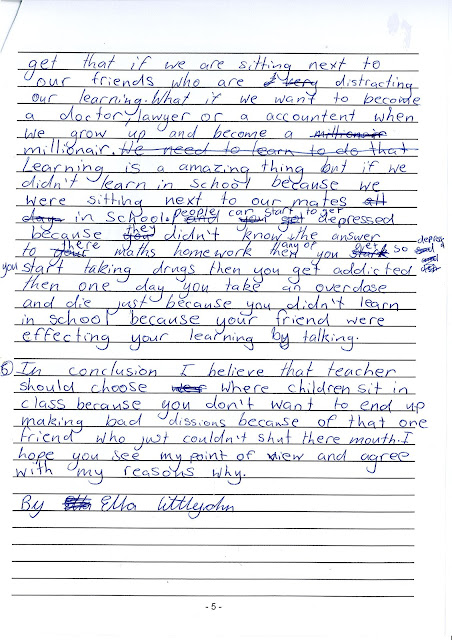 get that if we are sitting next to
our friends who are very distracting
our learning. What if we want to become
a doctor, lawyer or a accountent when
we grow up and become a millionair
millionair. We need to learn to do that
Learning is a amazing thing but if we
didn't learn in school because we
were sitting next to our mates all
day in school. people can start to get depressed
because they didn't know the answer
to there maths homework any of then you get so depress
you start taking drugs then you get addicted
then one day you take an overdose
and die just because you didn't learn
in school because your friend were
effecting your learning by talking.
⑥ In conclusion I believe that teacher
should choose where children sit in
class because you don't want to end up
making bad dissions because of that one
friend who just couldn't shut there mouth. I
hope you see my point of view and agree
with my reasons why.
By Ella Littlejohn
- 5 -